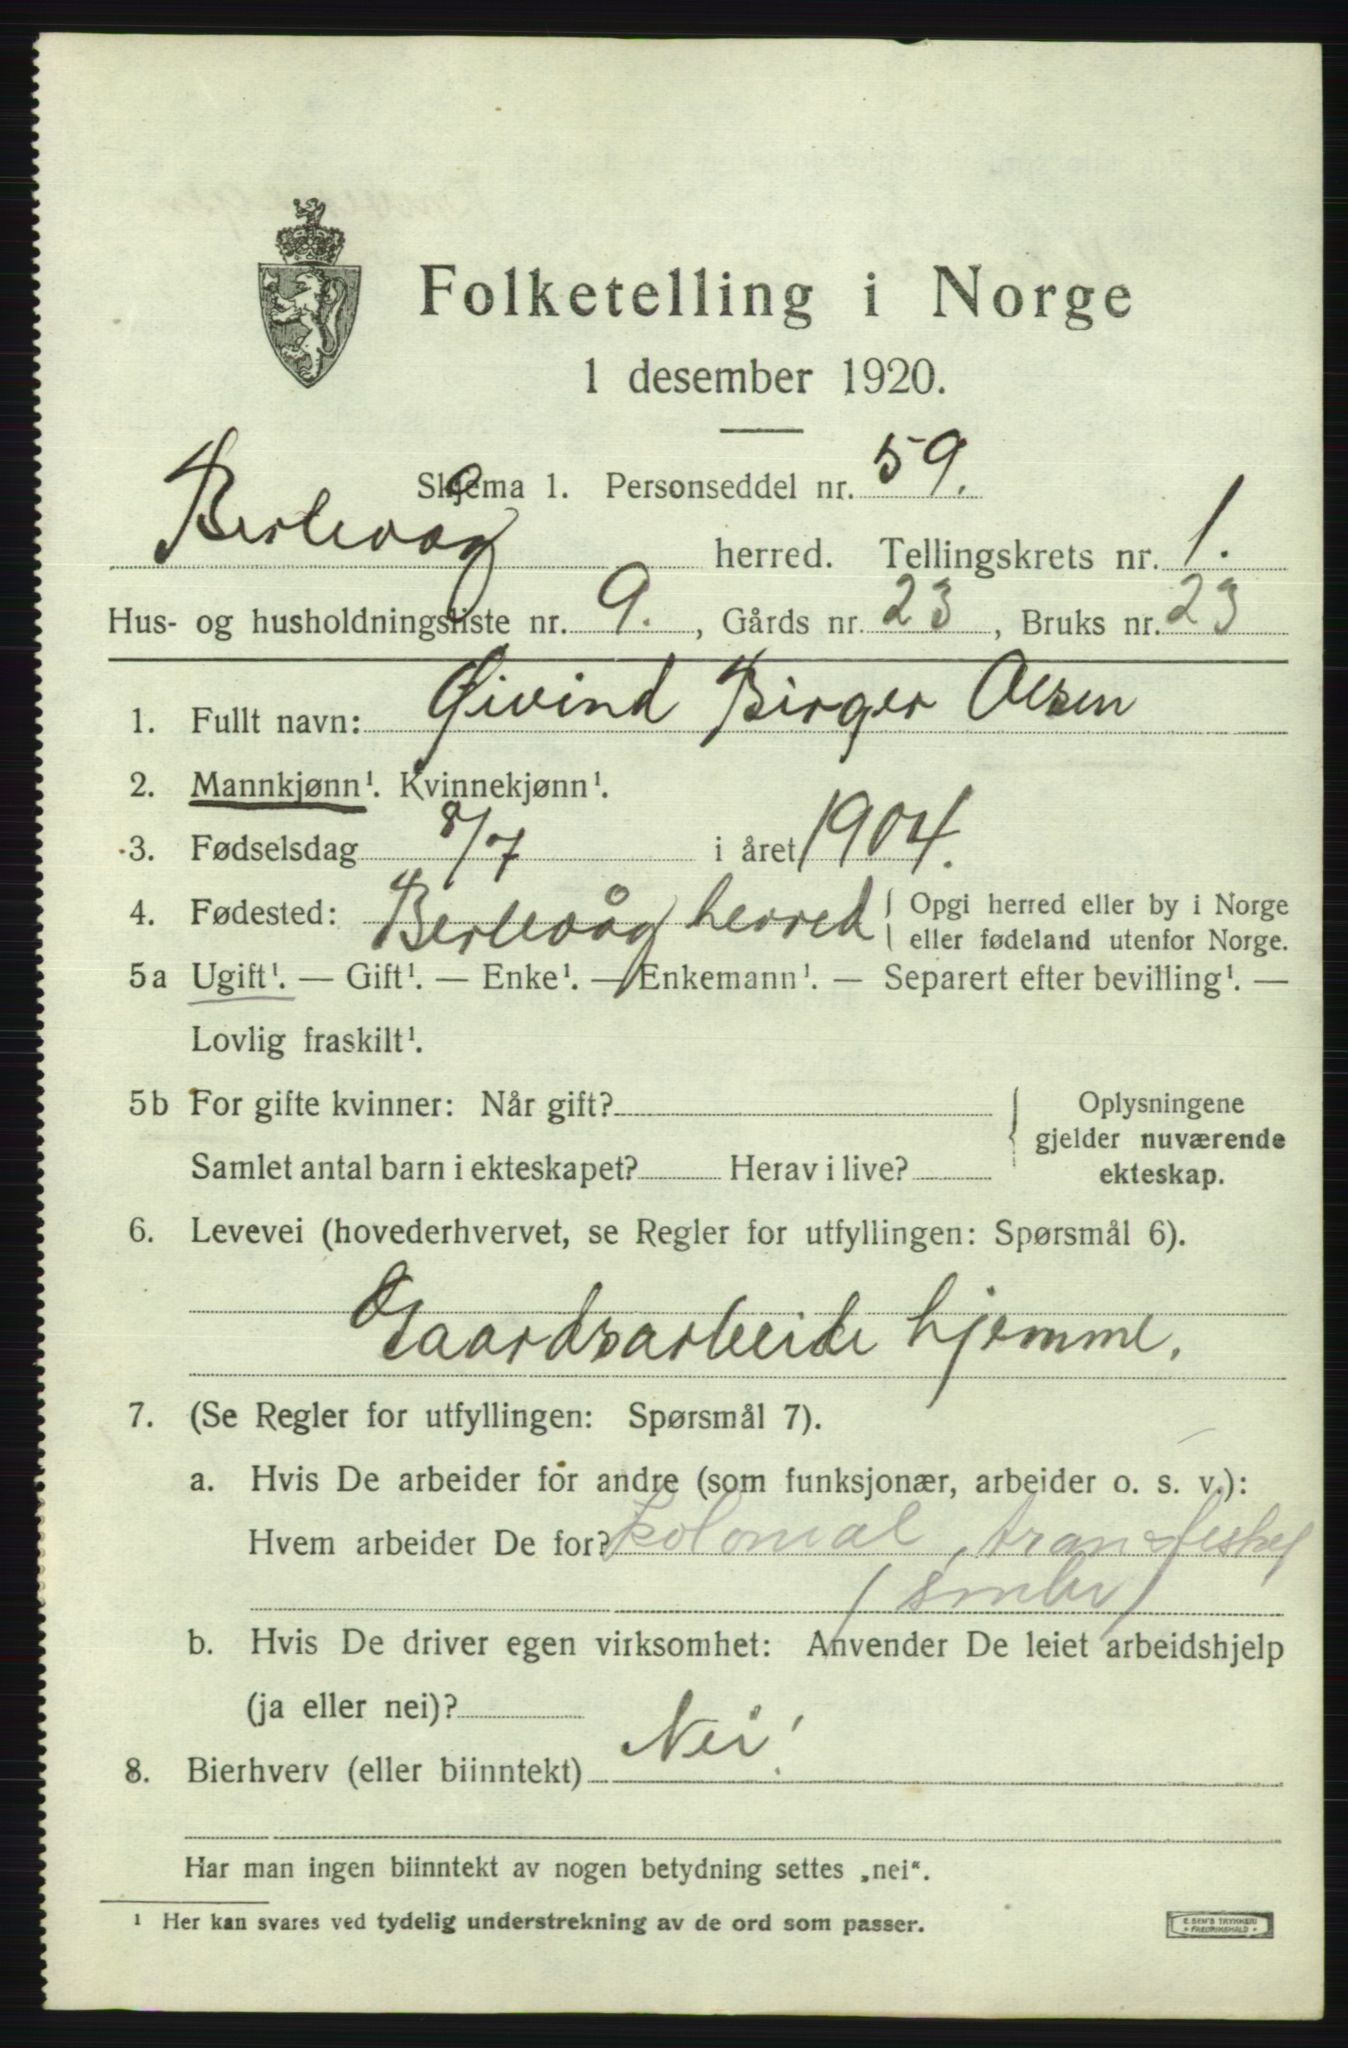 Folketelling i Norge
1 desember 1920.
Skjema 1. Personseddel nr. 59.
Berlevaag herred. Tellingskrets nr. 1.
Hus- og husholdningsliste nr. 9., Gårds nr. 23, Bruks nr. 23
1. Fullt navn: Øivind Birger Olsen
2. Mannkjønn¹. Kvinnekjønn¹.
3. Fødselsdag 8/7 i året 1904.
4. Fødested: Berlevåg herred { Opgi herred eller by i Norge
eller fødeland utenfor Norge.
5a Ugift¹. — Gift¹. — Enke¹. — Enkemann¹. — Separert efter bevilling¹. —
Lovlig fraskilt¹.
5b For gifte kvinner: Når gift?
Samlet antal barn i ekteskapet? Herav i live?
Oplysningene
gjelder nuværende
ekteskap.
6. Levevei (hovederhvervet, se Regler for utfyllingen: Spørsmål 6).
Gaardsarbeide hjemme.
7. (Se Regler for utfyllingen: Spørsmål 7).
a. Hvis De arbeider for andre (som funksjonær, arbeider o. s. v.):
Hvem arbeider De for? kolonial, tran
b. Hvis De driver egen virksomhet: Anvender De leiet arbeidshjelp
(ja eller nei)?
8. Bierhverv (eller biinntekt) Nei!
Har man ingen biinntekt av nogen betydning settes „nei“.
¹ Her kan svares ved tydelig understrekning av de ord som passer.
E. SEM'S TRYKKERI
FREDRIKSHALD